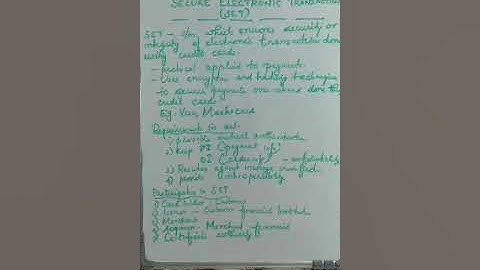 SECURE ELECTRONIC TRANSACTION
(SET)
SET - s/m, which ensures security or
integrity of electronic transaction done
using credit cards.
- protocol applied to payment
- Use encryption and hashing techniques
to secure payments over internet done thro'
credit cards
Eg. Visa, Mastercard
Requirement in set.
1) provide mutual authentication
2) Keep PI (payment i/f)
OI (order i/f) - confidential
3) Resistive against message modified.
4) provide interoperability
Participants in SET
1) Card holder : Customer
2) Issuer - Customer financial Institution
3) Merchant
4) Acquirer - Merchant financial
5) Certificate authority